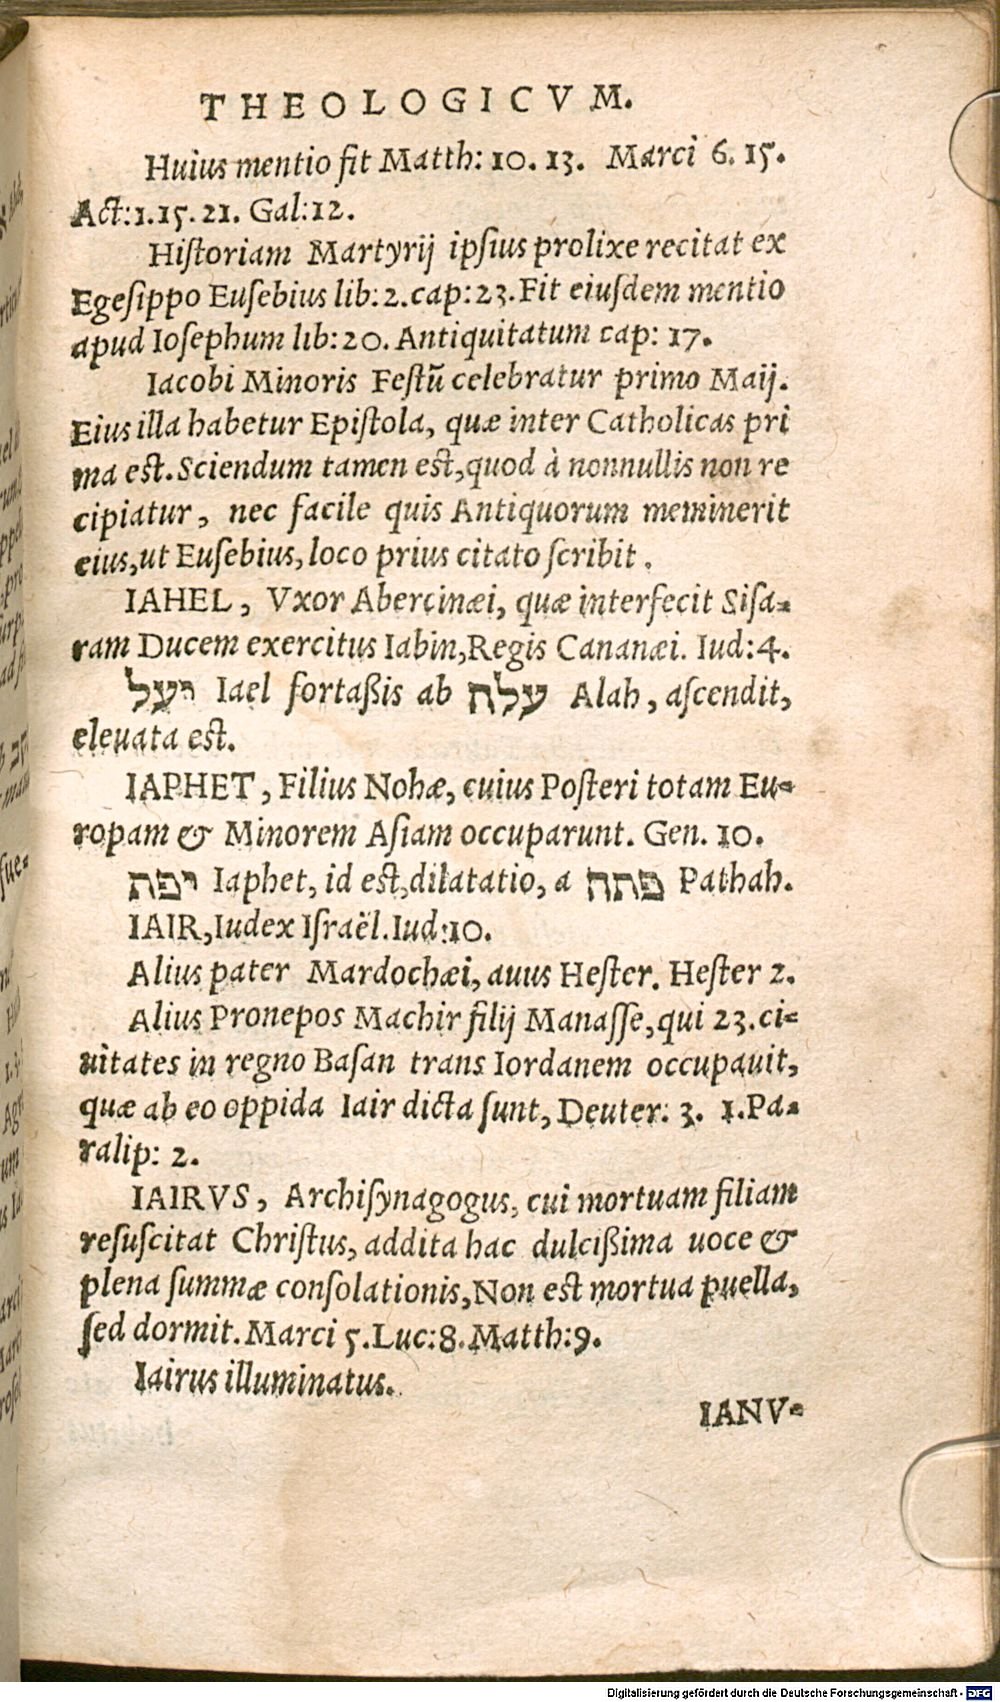 THEOLOGICVM.
Huius mentio fit Matth: 10. 13. Marci 6. 15.
Act: 1. 15. 21. Gal: 12.
Hiſtoriam Martyrij ipſius prolixe recitat ex
Egeſippo Euſebius lib: 2. cap: 23. Fit eiuſdem mentio
apud Ioſephum lib: 20. Antiquitatum cap: 17.
Iacobi Minoris Feſtũ celebratur primo Maij.
Eius illa habetur Epiſtola, quæ inter Catholicas pri
ma eſt. Sciendum tamen eſt, quod à nonnullis non re
cipiatur, nec facile quis Antiquorum meminerit
eius, ut Euſebius, loco prius citato ſcribit.
IAHEL, Vxor Abercinæi, quæ interfecit Siſa-
ram Ducem exercitus Iabin, Regis Cananæi. Iud: 4.
יעל Iael fortaßis ab עלה Alah, aſcendit,
eleuata eſt.
IAPHET, Filius Nohæ, cuius Poſteri totam Eu-
ropam & Minorem Aſiam occuparunt. Gen. 10.
יפת Iaphet, id eſt, dilatatio, a פתח Pathah.
IAIR, Iudex Iſraël. Iud: 10.
Alius pater Mardochæi, auus Heſter. Heſter 2.
Alius Pronepos Machir filij Manaſſe, qui 23. ci-
uitates in regno Baſan trans Iordanem occupauit,
quæ ab eo oppida Iair dicta ſunt, Deuter: 3. 1. Pa-
ralip: 2.
IAIRVS, Archiſynagogus, cui mortuam filiam
reſuſcitat Chriſtus, addita hac dulcißima uoce &
plena ſummæ conſolationis, Non eſt mortua puella,
ſed dormit. Marci 5. Luc: 8. Matth: 9.
Iairus illuminatus.
IANV-
Digitalisierung gefördert durch die Deutsche Forschungsgemeinschaft - DFG